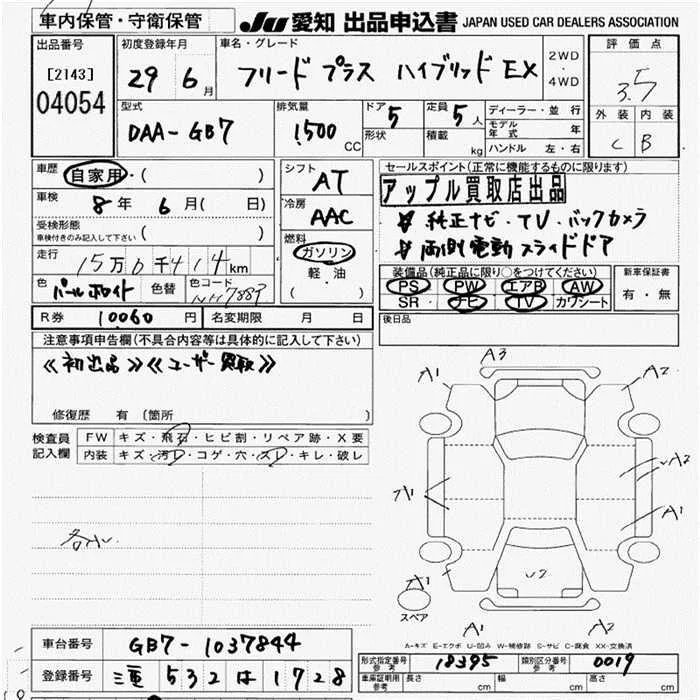 車内保管・守衛保管
JU 愛知 出品申込書 JAPAN USED CAR DEALERS ASSOCIATION
出品番号
[2143]
04054
初度登録年月
29 6月
車名・グレード
フリード プラス ハイブリッド EX
2WD・4WD
評価点
3.5
外装 内装
C B
型式
DAA-GB7
排気量
1500 CC
ドア 5
形状
定員 5人
積載 kg
ディーラー・並行
モデル年式 年
ハンドル 左・右
車歴
自家用・( )
車検 8年 6月( 日)
受検形態
車検付きのみ記入して下さい ( )
走行 15万6千414km
色 パールホワイト 色替 色コード NH788P
シフト
AT
冷房
AAC
燃料
ガソリン
軽油
( )
セールスポイント(正常に機能するものに限ります)
アップル買取店出品
☆ 純正ナビ・TV・バックカメラ
☆ 両側電動スライドドア
装備品(純正品に限り○をつけてください)
PS PW エアB AW
SR ナビ TV カワシート
新車保証書
有・無
R券 10060円 名変期限 月 日
後日品
注意事項申告欄(不具合内容等は具体的に記入して下さい)
≪初出品≫≪ユーザー買取≫
修復歴 有 〔箇所 〕
検査員記入欄
FW キズ・飛石・ヒビ割・リペア跡・X要
内装 キズ・汚レ・コゲ・穴・スレ・キレ・破レ
A3
A1 A2
A1 A2
A1
U2
A1
スペア
A1 A2
A-キズ E-エクボ U-凹み W-補修跡 S-サビ C-腐食 XX-交換済
車台番号 GB7-1037844
登録番号 三重 532 は 1728
型式指定番号 参考 18395 類別区分番号 参考 0019
車庫証明用 参考 長さ cm 幅 cm 高さ cm